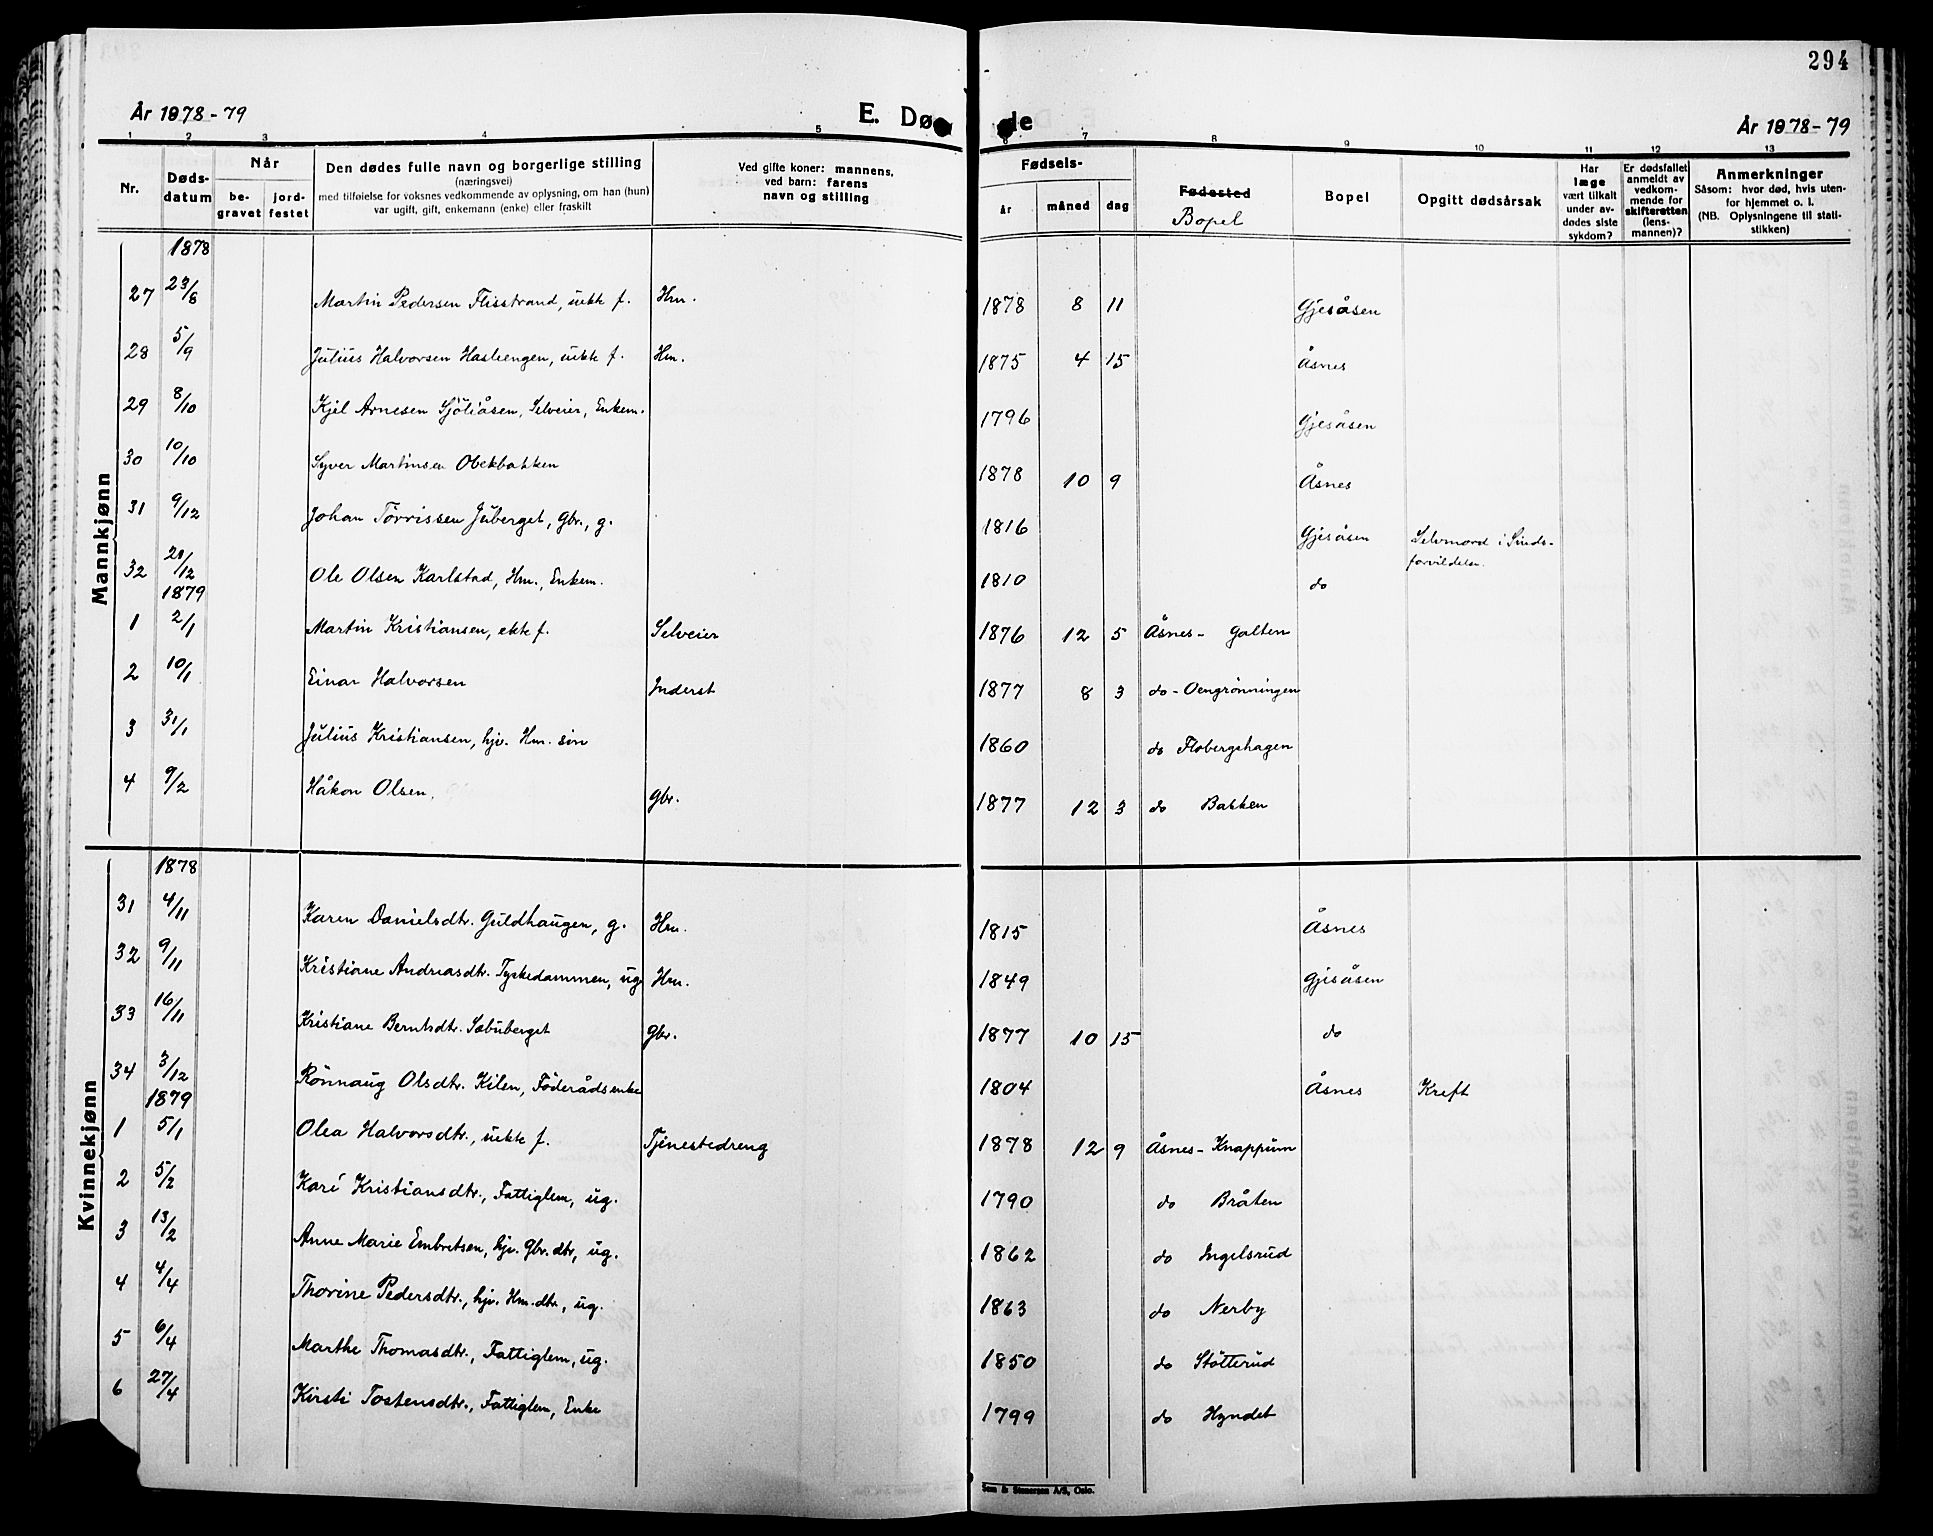 294
År 1878-79
E. Dø de
År 1878-79
1 2 3 4 5 6 7 8 9 10 11 12 13
Nr.
Døds-
datum
Når
be-
gravet
jord-
festet
Den dødes fulle navn og borgerlige stilling
(næringsvei)
med tilføielse for voksnes vedkommende av oplysning, om han (hun)
var ugift, gift, enkemann (enke) eller fraskilt
Ved gifte koner: mannens,
ved barn: farens
navn og stilling
Fødsels-
år måned dag
Fødested
Bopel
Bopel
Opgitt dødsårsak
Har
læge
vært tilkalt
under av-
dødes siste
sykdom?
Er dødsfallet
anmeldt av
vedkom-
mende for
skifteretten
(lens-
mannen)?
Anmerkninger
Såsom: hvor død, hvis uten-
for hjemmet o. l.
(NB. Oplysningene til stati-
stikken)
Mannkjønn
1878
27 23/8 Martin Pedersen Flisstrand, uekte f. Hm. 1878 8 11 Gjesåsen
28 5/9 Julius Halvorsen Hasliengen, uekte f. Hm. 1875 4 15 Åsnes
29 8/10 Kjel Arnesen Sjöliåsen, Selveier, Enkem. 1796 Gjesåsen
30 10/10 Syver Martinsen Obekbakken 1878 10 9 Åsnes
31 9/12 Johan Törrissen Juberget, Gbr., g. 1816 Gjesåsen Selvmord i Sinds-
forvildelse.
32 20/12 Ole Olsen Karlstad, Hm., Enkem. 1810 do
1879
1 2/1 Martin Kristiansen, ekte f. Selveier 1876 12 5 Åsnes - Galten
2 10/1 Einar Halvorsen Inderst 1877 8 3 do - Oengrönningen
3 31/1 Julius Kristiansen, hjv. Hm. sön 1860 do Flobergshagen
4 9/2 Håkon Olsen, Gbr. 1877 12 3 do Bakken
Kvinnekjønn
1878
31 4/11 Karen Danielsdtr. Guldhaugen, g. Hm. 1815 Åsnes
32 9/11 Kristiane Andreasdtr. Tyskedammen, ug Hm. 1849 Gjesåsen
33 16/11 Kristiane Berntsdtr. Sæbuberget Gbr. 1877 10 15 do
34 3/12 Rönnaug Olsdtr. Kilen, Föderådsenke 1804 Åsnes Kreft
1879
1 5/1 Olea Halvorsdtr., uekte f. Tjenestedreng 1878 12 9 Åsnes - Knappum
2 5/2 Kari Kristiansdtr., Fattiglem, ug. 1790 do Bråten
3 13/2 Anne Marie Embretsen, hjv. Gbr. dtr, ug. 1862 do Ingelsrud
4 4/4 Thorine Pedersdtr., hjv. Hm. dtr, ug. 1863 do Nerby
5 6/4 Marthe Thomasdtr., Fattiglem, ug. 1850 do Stötterud
6 27/4 Kirsti Tostensdtr., Fattiglem, Enke 1799 do Hyndet
Sem & Stenersen A/S, Oslo.